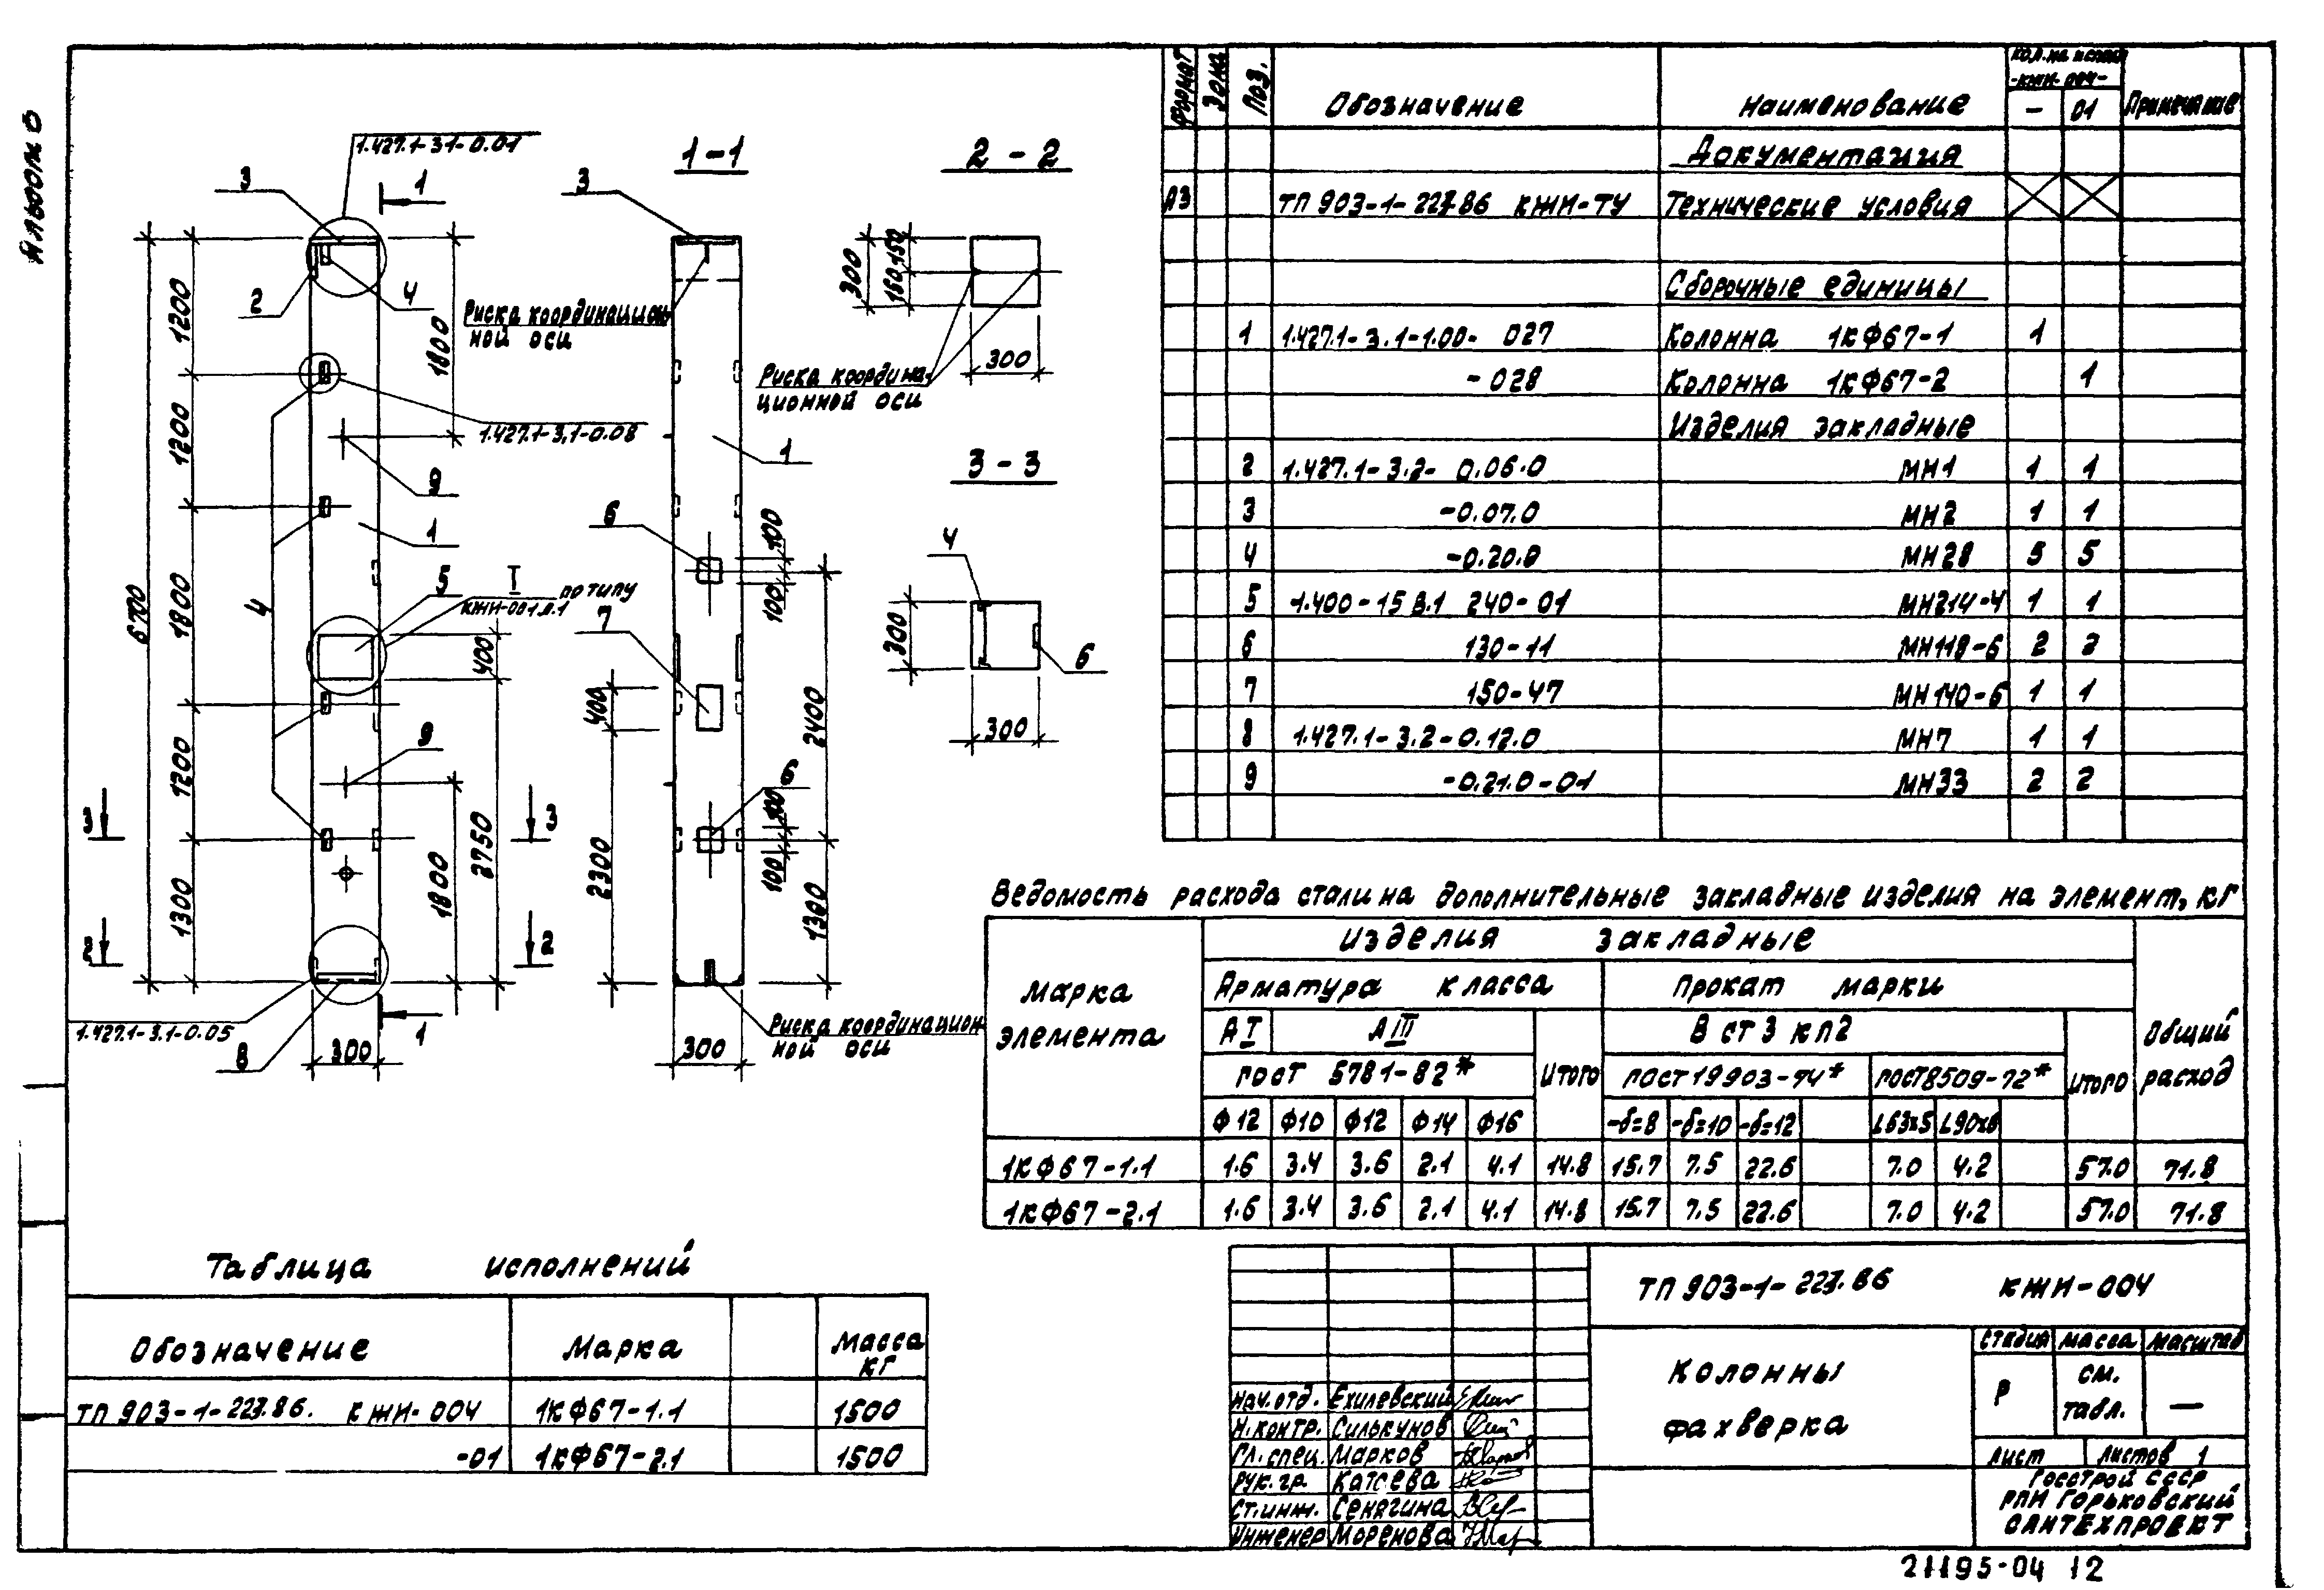 Альбом 0
1.427.1-3.1-0.01
3
1
2
4
1200
1200
1800
1200
1300
6700
1800
1.427.1-3.1-0.08
9
1
4
5
I
по типу
КЖИ-001.л.1
400
9
3
3
2
2
1800
2750
1.427.1-3.1-0.05
8
300
1
1-1
3
Риска координацион
ной оси
1
6
100
100
7
400
2400
2300
6
100
100
1300
Риска координацион
ной оси
300
2-2
300
150
150
300
Риска координа
ционной оси
3-3
4
300
6
300
Формат
Зона
Поз.
Обозначение
Наименование
Кол. на испол
-КЖИ-004-
-
01
Примечание
Документация
А3 ТП 903-1-227.86 КЖИ-ТУ Технические условия
Сборочные единицы
1 1.427.1-3.1-1.00- 027 Колонна 1КФ67-1 1
-028 Колонна 1КФ67-2 1
Изделия закладные
2 1.427.1-3.2- 0.06.0 МН1 1 1
3 -0.07.0 МН2 1 1
4 -0.20.0 МН28 5 5
5 1.400-15 В.1 240-01 МН214-4 1 1
6 130-11 МН118-6 2 2
7 150-47 МН140-6 1 1
8 1.427.1-3.2-0.12.0 МН7 1 1
9 -0.21.0-01 МН33 2 2
Ведомость расхода стали на дополнительные закладные изделия на элемент, кг
Марка
элемента
Изделия закладные
Арматура класса
Прокат марки
Общий
расход
А I
А III
Итого
В ст 3 кп2
Итого
ГОСТ 5781-82*
ГОСТ 19903-74*
ГОСТ 8509-72*
Ф12 Ф10 Ф12 Ф14 Ф16 -δ=8 -δ=10 -δ=12 L63x5 L90x8
1КФ67-1.1 1.6 3.4 3.6 2.1 4.1 14.8 15.7 7.5 22.6 7.0 4.2 57.0 71.8
1КФ67-2.1 1.6 3.4 3.6 2.1 4.1 14.8 15.7 7.5 22.6 7.0 4.2 57.0 71.8
Таблица исполнений
Обозначение Марка Масса
кг
ТП 903-1-227.86. КЖИ-004 1КФ67-1.1 1500
-01 1КФ67-2.1 1500
ТП 903-1-227.86 КЖИ-004
Колонны
фахверка
Стадия Масса Масштаб
Р
см.
табл.
—
Лист Листов 1
Госстрой СССР
РПИ Горьковский
САНТЕХПРОЕКТ
Нач.отд. Ехилевский
Н.контр. Силькунов
Гл.спец. Марков
Рук.гр. Катаева
Ст.инж. Сенягина
Инженер Моренова
21195-04 12